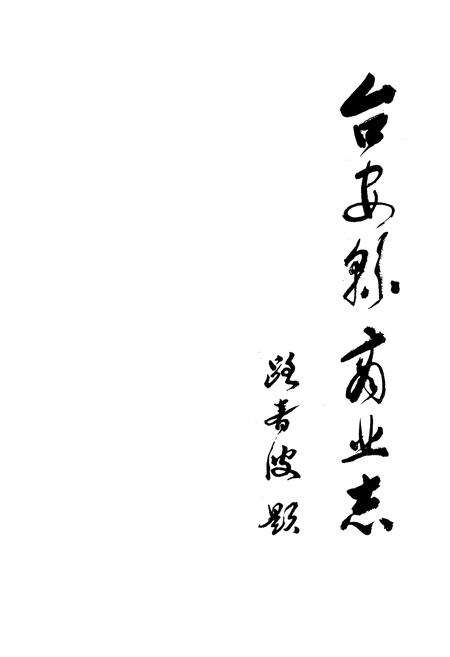 台安縣商业志
路青波 题